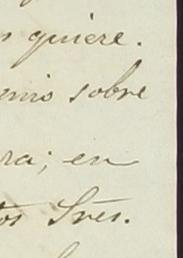 quiere.
enio sobre
ra; en
tos Sres.